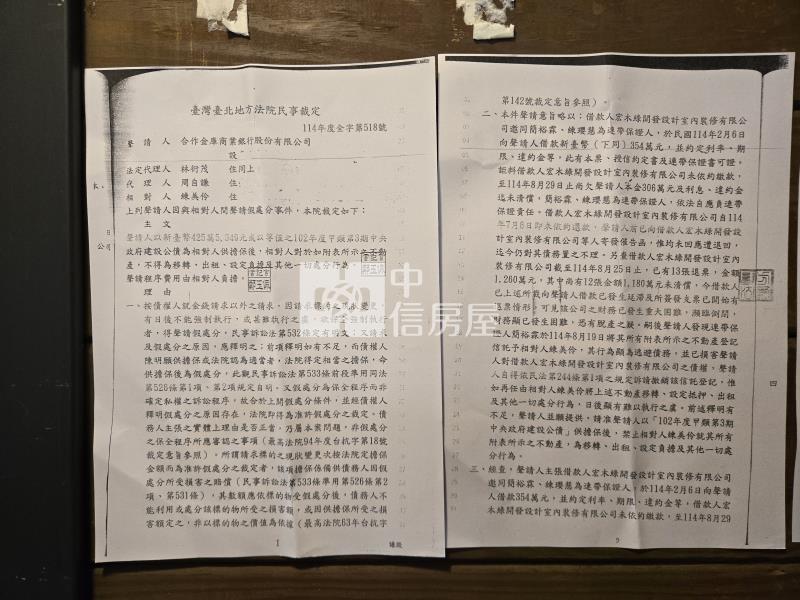 臺灣臺北地方法院民事裁定
114年度全字第518號
聲請人 合作金庫商業銀行股份有限公司
設
法定代理人 林衍茂 住同上
代理人 周自謙 住:
相對人 練美伶 住:
上列聲請人因與相對人間聲請假處分事件,本院裁定如下:
主文
聲請人以新臺幣425萬5,349元或以等值之102年度甲類第3期中央
政府建設公債為相對人供擔保後,相對人對於如附表所示之不動
產,不得為移轉、出租、設定負擔及其他一切處分行為。
聲請程序費用由相對人負擔。
理由
一、按債權人就金錢請求以外之請求,因請求標的之現狀變更,
有日後不能強制執行,或甚難執行之虞,欲保全強制執行
者,得聲請假處分,民事訴訟法第532條定有明文;又請求
及假處分之原因,應釋明之;前項釋明如有不足,而債權人
陳明願供擔保或法院認為適當者,法院得定相當之擔保,命
供擔保後為假處分,此觀民事訴訟法第533條前段準用同法
第526條第1項、第2項規定自明。又假處分為保全程序而非
確定私權之訴訟程序,故合於上開假處分條件,並經債權人
釋明假處分之原因存在,法院即得為准許假處分之裁定。債
務人主張之實體上理由是否正當,乃屬本案問題,非假處分
之保全程序所應審認之事項(最高法院94年度台抗字第18號
裁定意旨參照)。所謂請求標的之現狀變更次按法院定擔保
金額而為准許假處分之裁定者,該項擔保係備供債務人因假
處分所受損害之賠償(民事訴訟法第533條準用第526條第2
項、第531條),其數額應依標的物受假處分後,債務人不
能利用或處分該標的物所受之損害額,或因供擔保所受之損
害額定之,非以標的物之價值為依據(最高法院63年台抗字
1
第142號裁定意旨參照)。
二、本件聲請意旨略以:借款人宏木綠開發設計室內裝修有限公
司邀同簡裕霖、練瓔慧為連帶保證人,於民國114年2月6日
向聲請人借款新臺幣(下同)354萬元,並約定利率、期
限、違約金等,此有本票、授信約定書及連帶保證書可證。
詎料借款人宏木綠開發設計室內裝修有限公司未依約繳款,
至114年8月29日止尚欠聲請人本金306萬元及利息、違約金
迄未清償,簡裕霖、練瓔慧為連帶保證人,依法自應負連帶
保證責任。借款人宏木綠開發設計室內裝修有限公司自114
年7月6日即未依約還款,聲請人前已向借款人宏木綠開發設
計室內裝修有限公司等人寄發催告函,惟均未回應遭退回,
迄今仍對其債務置之不理。另查借款人宏木綠開發設計室內
裝修有限公司截至114年8月25日止,已有13張退票,金額
1,260萬元,其中尚有12張金額1,180萬元未清償,今借款人
已上述所載向聲請人借款已發生延滯及所簽發支票已開始有
退票情形,可見該公司之財務已發生重大困難,瀕臨倒閉,
財務顯已發生困難,恐有脫產之嫌。嗣後聲請人發現連帶保
證人簡裕霖於114年8月19日將其所有附表所示之不動產登記
信託予相對人練美伶,其行為顯為逃避債務,並已損害聲請
人對借款人宏木綠開發設計室內裝修有限公司之債權,聲請
人自得依民法第244條第1項之規定訴請撤銷該信託登記,惟
如再任由相對人練美伶將上述不動產移轉、設定抵押、出租
及其他一切處分行為,日後顯有難以執行之虞。前述釋明有
不足,聲請人並願提供,請准聲請人以「102年度甲類第3期
中央政府建設公債」供擔保後,禁止相對人練美伶就其所有
附表所示之不動產,為移轉、出租、設定負擔及其他一切處
分行為。
三、經查,聲請人主張借款人宏木綠開發設計室內裝修有限公司
邀同簡裕霖、練瓔慧為連帶保證人,於114年2月6日向聲請
人借款354萬元,並約定利率、期限、違約金等,借款人宏
木綠開發設計室內裝修有限公司未依約繳款,至114年8月29
中信房屋